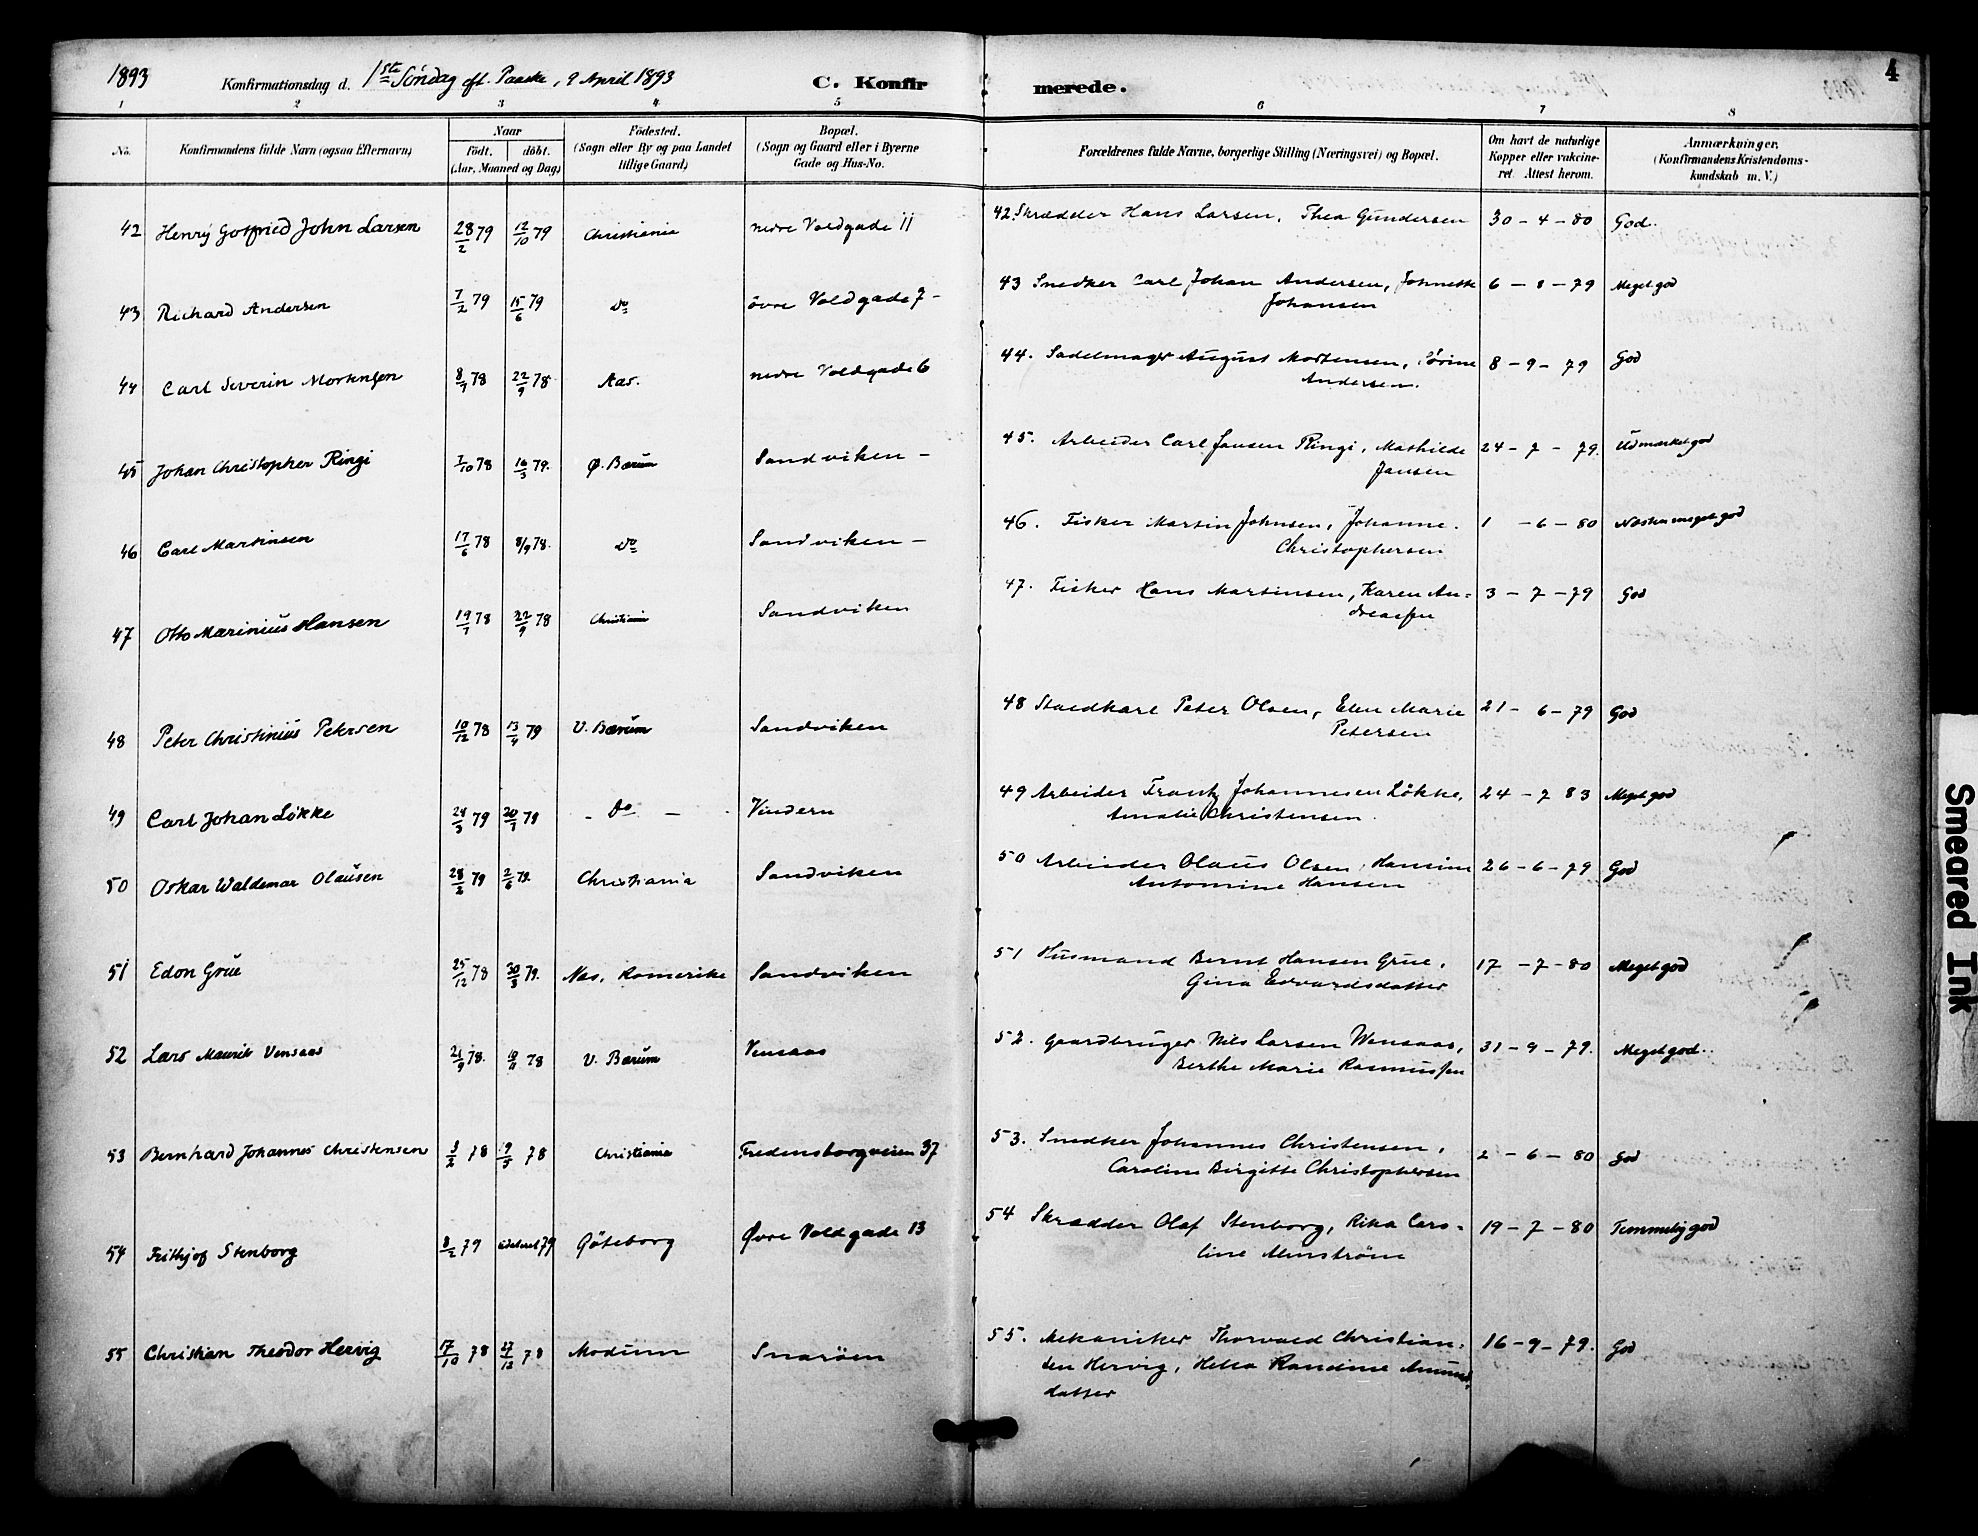 1893 Konfirmationsdag d. 1ste Søndag eft. Paaske, 9 April 1893 C. Konfir merede. 4
1 2 3 4 5 6 7 8
No. Konfirmandens fulde Navn (ogsaa Efternavn) Naar Født. døbt. (Aar, Maaned og Dag) Födested. (Sogn eller By og paa Landet tillige Gaard) Bopæl. (Sogn og Gaard eller i Byerne Gade og Hus-No. Forældrenes fulde Navne, borgerlige Stilling (Næringsvei) og Bopæl. Om havt de naturlige Kopper eller vakcineret. Attest herom. Anmærkninger. (Konfirmandens Kristendomskundskab m. V.)
42 Henry Gotfried John Larsen 28/2 79 12/10 79 Christiania nedre Voldgade 11 42. Skrædder Hans Larsen, Thea Gundersen 30 - 4 - 80 God.
43 Richard Andersen 7/2 79 15/6 79 Do övre Voldgade 7 - 43 Snedker Carl Johan Andersen, Johnette 6 - 8 - 79 Meget god
Johansen
44 Carl Severin Mortensen 8/7 78 22/9 78 Aas. nedre Voldgade 6 44. Sadelmager August Mortensen, Sörine 8 - 9 - 79 God
Andersen.
45 Johan Christopher Ringi 7/10 78 16/3 79. Ø. Bærum Sandviken - 45. Arbeider Carl Jansen Ringi, Mathilde 24 - 7 - 79. Udmærket god
Jansen
46 Carl Martinsen 17/6 78 8/9 78. Do Sandviken - 46. Fisker Martin Johnsen, Johanne 1 - 6 - 80 Næsten meget god
Christophersen
47 Otto Marinius Hansen 19/7 78 22/9 78 Christiania Sandviken 47. Fisker Hans Martinsen, Karen An= 3 - 7 - 79 God
dreassen
48 Peter Christinius Petersen 10/12 78 13/4 79 V. Bærum Sandviken 48 Staldkarl Peter Olsen, Elen Marie 21 - 6 - 79 God
Petersen
49 Carl Johan Løkke 24/3 79 20/7 79 - Do - Vindern 49 Arbeider Frantz Johannesen Løkke, 24 - 7 83 Meget god
Amalie Christensen.
50 Oskar Waldemar Olausen 28/2 79 2/6 79. Christiania Sandviken 50 Arbeider Olaus Olsen, Hansine 26 - 6 - 79 God
Antomine Hansen
51 Edon Grue 25/12 78 30/3 79. Nes, Romerike Sandviken 51 Husmand Bernt Hansen Grue, 17 - 7 - 80 Meget god
Gina Edvardsdatter
52 Lars Maurits Vensaas 21/9 78. 10/11 78 V. Bærum Vensaas 52. Gaardbruger Nils Larsen Wensaas, 31 - 9 - 79. Meget god.
Berthe Marie Rasmussen
53 Bernhard Johannes Christensen 3/2 78 9/5 78 Christiania Fredensborgveien 37 53. Snedker Johannes Christensen, 2 - 6 - 80 God
Caroline Birgitte Christophersen
54 Frithjof Stenborg 8/2 79 79 Göteborg Øvre Voldgade 13 54 Skrædder Olaf Stenborg, Rika Caro= 19 - 7 - 80 Temmelig god
line Almström
55 Christian Theodor Hervig 17/10 78 27/12 78 Modum Snarøen 55. Mekaniker Thorvald Christian= 16 - 9 - 79. God
sen Hervig, Helka Randine Amunds
datter
Smeared Ink